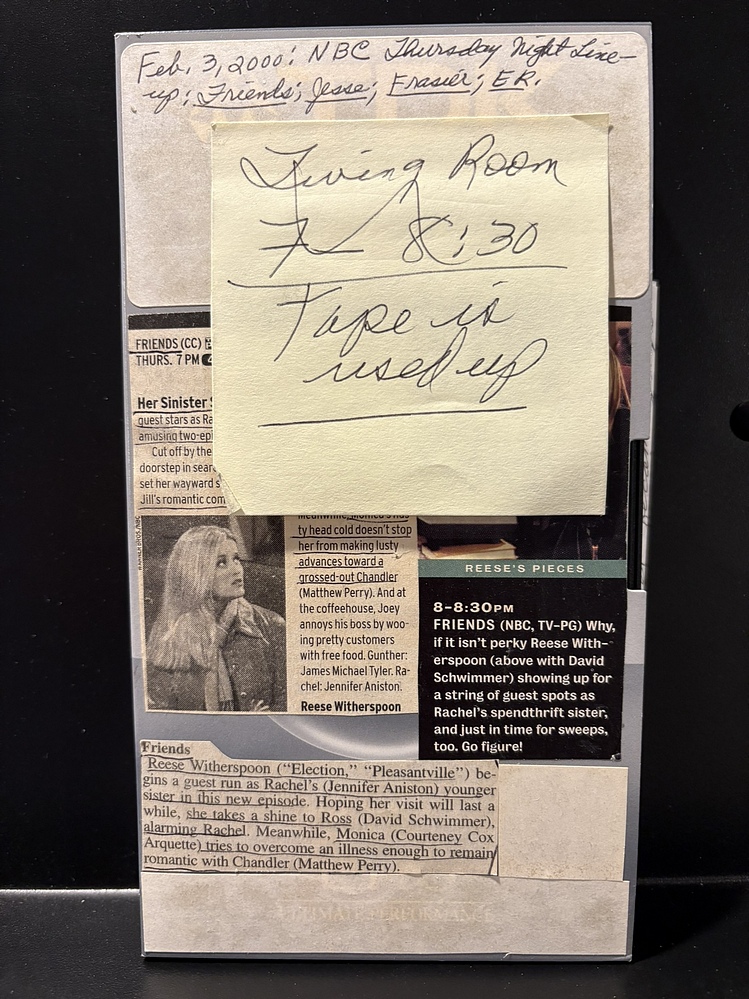 Feb. 3, 2000: NBC Thursday Night Line-
up: Friends; Jesse; Frasier; ER.
Living Room
7— 8:30
Tape is
used up
FRIENDS (CC)
THURS. 7 PM
Her Sinister
guest stars as Ra
amusing two-epi
Cut off by the
doorstep in sear
set her wayward s
Jill's romantic com
WARNER BROS./NBC
Meanwhile, Monica's nas-
ty head cold doesn't stop
her from making lusty
advances toward a
grossed-out Chandler
(Matthew Perry). And at
the coffeehouse, Joey
annoys his boss by woo-
ing pretty customers
with free food. Gunther:
James Michael Tyler. Ra-
chel: Jennifer Aniston.
Reese Witherspoon
REESE'S PIECES
8–8:30PM
FRIENDS (NBC, TV–PG) Why,
if it isn't perky Reese With-
erspoon (above with David
Schwimmer) showing up for
a string of guest spots as
Rachel's spendthrift sister,
and just in time for sweeps,
too. Go figure!
Friends
Reese Witherspoon ("Election," "Pleasantville") be-
gins a guest run as Rachel's (Jennifer Aniston) younger
sister in this new episode. Hoping her visit will last a
while, she takes a shine to Ross (David Schwimmer),
alarming Rachel. Meanwhile, Monica (Courteney Cox
Arquette) tries to overcome an illness enough to remain
romantic with Chandler (Matthew Perry).
ULTIMATE PERFORMANCE